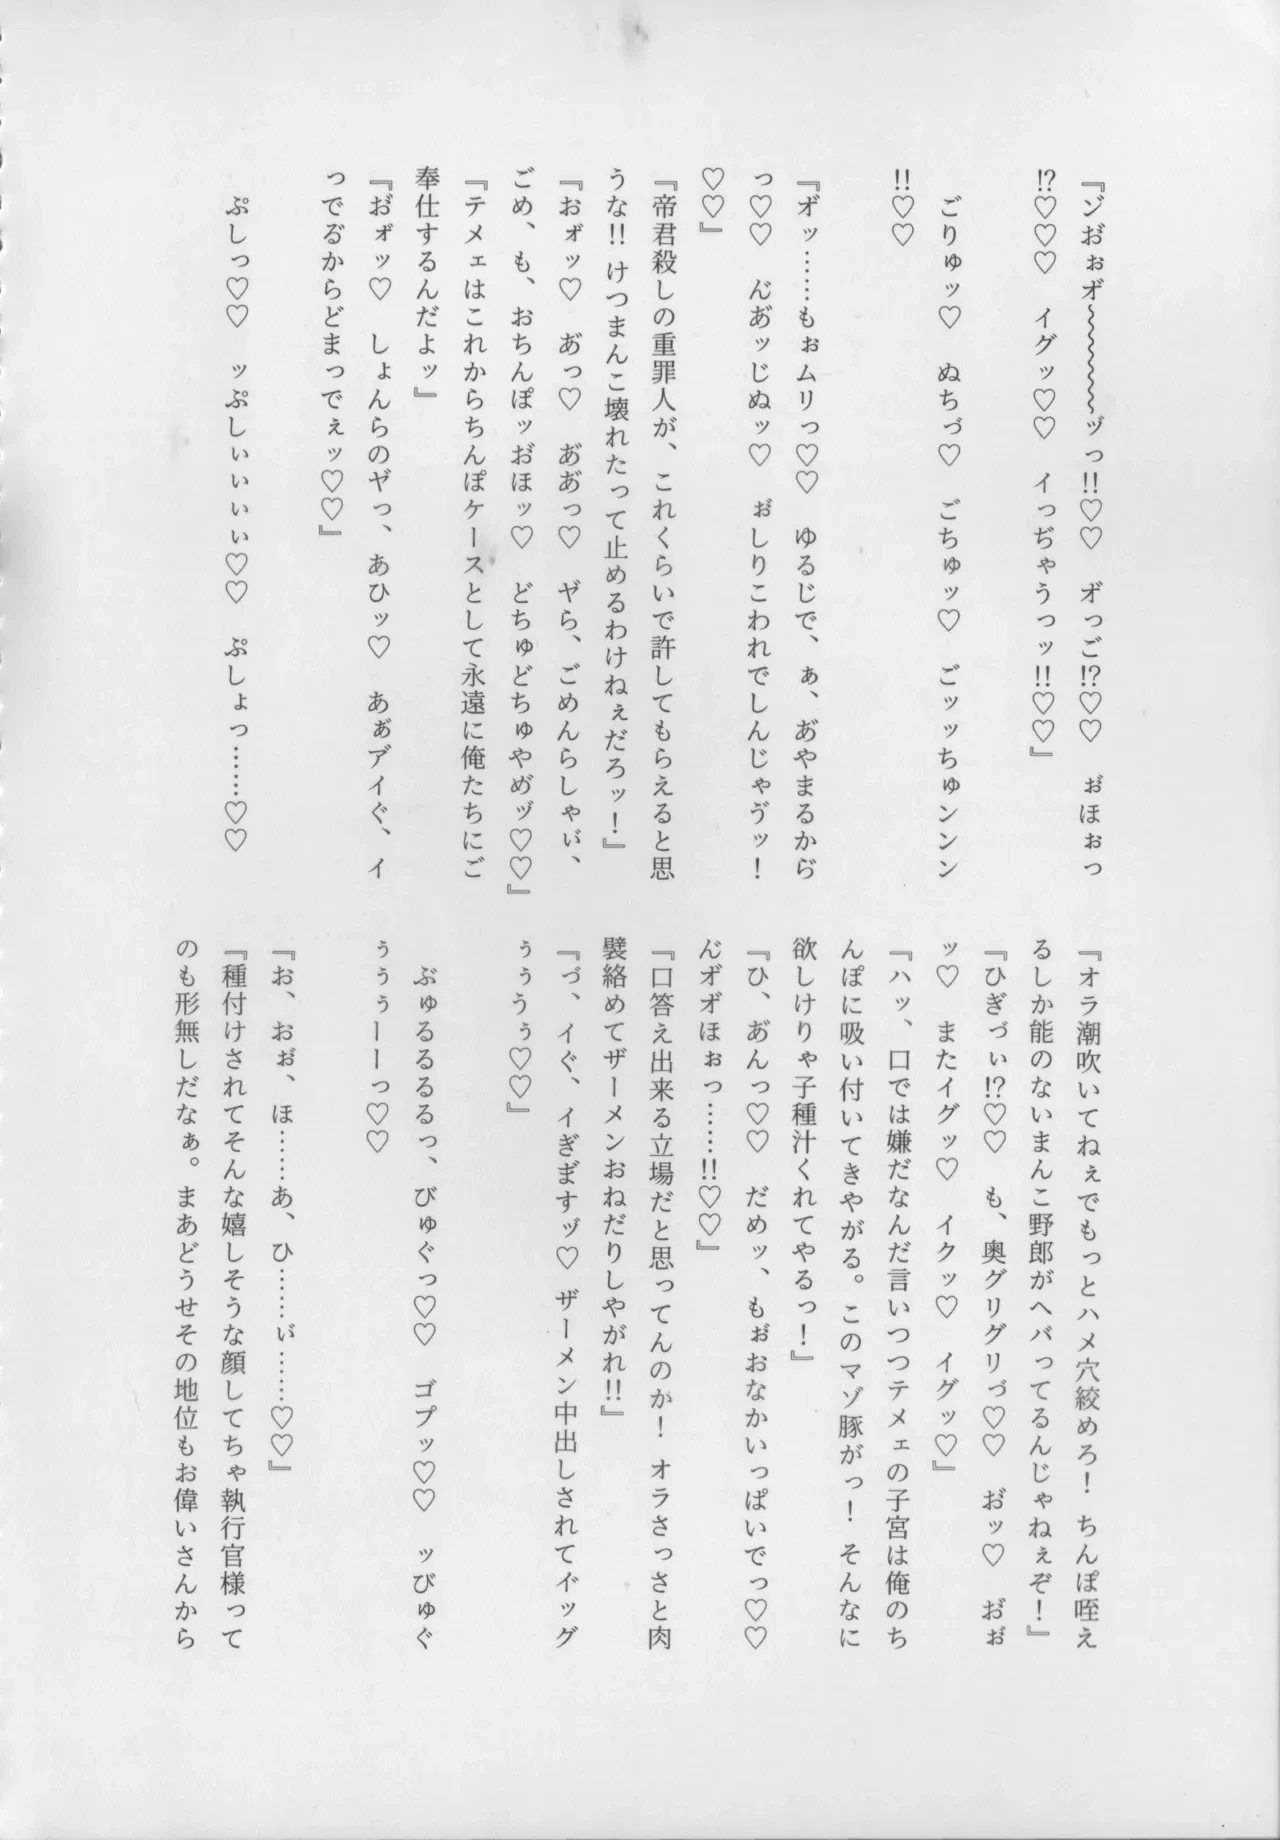 『ゾお゙ぉオ゙～～～～～ッ゙っ!!♡♡　オ゙っご!?♡♡　ぉ゙ほぉっ
!?♡♡♡　イグッ♡♡　イっぢゃうっッ!!♡♡』
　ごりゅッ♡　ぬちっ゙♡　ごちゅッ♡　ごッッちゅンンン
!!♡♡
『オ゙ッ……もぉムリっ♡♡　ゆるじで、ぁ、あ゙やまるからぢ
っ♡♡　ん゙あ゙ッじぬッ♡　ぉ゙しりこわれでしんじゃゔッ！
♡♡』
『帝君殺しの重罪人が、これくらいで許してもらえると思
うな!! けつまんこ壊れたって止めるわけねぇだろッ！』
『おォ゙ッ♡　あ゙っ♡　あ゙あ゙っ♡　ヤ゙ら、ごめんらしゃぃ゙、
ごめ、も、おちんぽッお゙ほッ♡　どちゅどちゅやめ゙ッ♡♡』
『テメェはこれからちんぽケースとして永遠に俺たちにご
奉仕するんだよッ』
『お゙ォ゙ッ♡　しょんらのヤ゙っ、あひッ♡　あぁ゙ア゙イぐ、イ
っでる゙からどまっでぇッ♡♡』
　ぷしっ♡♡　ッぷしぃぃぃぃ♡♡　ぷしょっ……♡♡
『オラ潮吹いてねぇでもっとハメ穴絞めろ！ ちんぽ咥え
るしか能のないまんこ野郎がヘバってるんじゃねぇぞ！』
『ひぎっ゙ぃ!?♡♡　も、奥グリグリっ゙♡♡　お゙ッ♡　お゙ぉ
ッ♡　またイグッ♡　イクッ♡　イグッ♡』
『ハッ、口では嫌だなんだ言いつつテメェの子宮は俺のち
んぽに吸い付いてきやがる。このマゾ豚がっ！ そんなに
欲しけりゃ子種汁くれてやるっ！』
『ひ、あ゙んっ♡♡　だめッ、もぉ゙おなかいっぱいでっ♡♡
ん゙オ゙オ゙ほぉっ……!!♡♡』
『口答え出来る立場だと思ってんのか！ オラさっさと肉
襞絡めてザーメンおねだりしやがれ!!』
『っ゙、イぐ、イぎま゙すッ゙♡ ザーメン中出しされてイ゙ッグ
ぅぅうぅ♡♡』
　ぶゅるるるるっ、びゅぐっ♡♡　ゴプッ♡♡　ッびゅぐ
ぅぅぅーーっ♡♡
『お、おぉ゙、ほ……あ、ひ……ぃ゙……♡♡』
『種付けされてそんな嬉しそうな顔してちゃ執行官様って
のも形無しだなぁ。まあどうせその地位もお偉いさんから